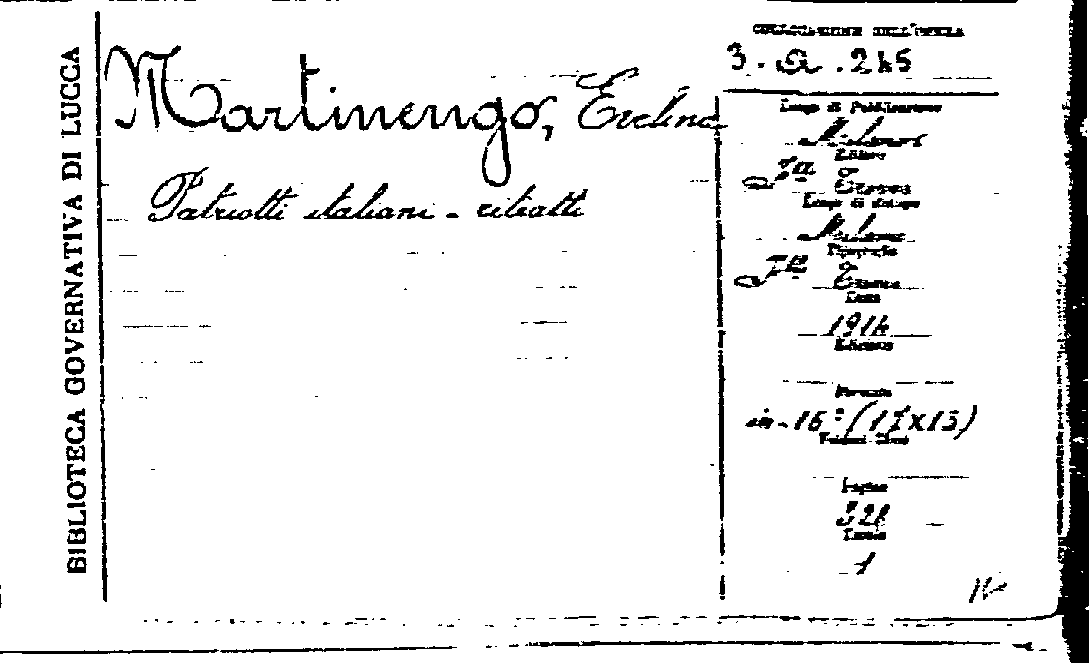 BIBLIOTECA GOVERNATIVA DI LUCCA
Martinengo, Evelina
Patriotti italiani - ritratti
COLLOCAZIONE DELL'OPERA
3. a. 245
Luogo di Pubblicazione
Milano
Editore
F.lli Treves
Luogo di Stampa
Milano
Tipografia
F.lli Treves
Data
1914
Edizione
Formato
in-16° (17x13)
Volumi
Pagine
Tavole
1